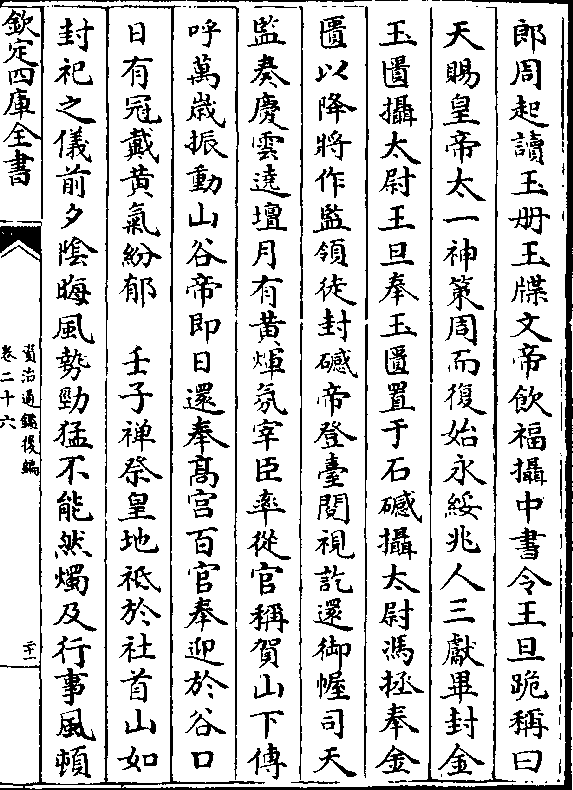 郎周起讀玉册玉牒文帝飲福攝中書令王旦跪稱曰
天賜皇帝太一神策周而復始永綏兆人三獻畢封金
玉匱攝太尉王旦奉玉匱置于石𥗇攝太尉馮拯奉金
匱以降將作監領徒封𥗇帝登臺閱視訖還御幄司天
監奏慶雲遶壇月有黄煇氛宰臣率從官稱賀山下傳
呼萬歲振動山谷帝即日還奉髙宫百官奉迎於谷口
日有冠戴黄氣紛郁　壬子禅祭皇地祗於社首山如
封祀之儀前夕隂晦風勢勁猛不能然燭及行事風頓
欽定四庫全書
資治通鑑後編
卷二十六
二十一